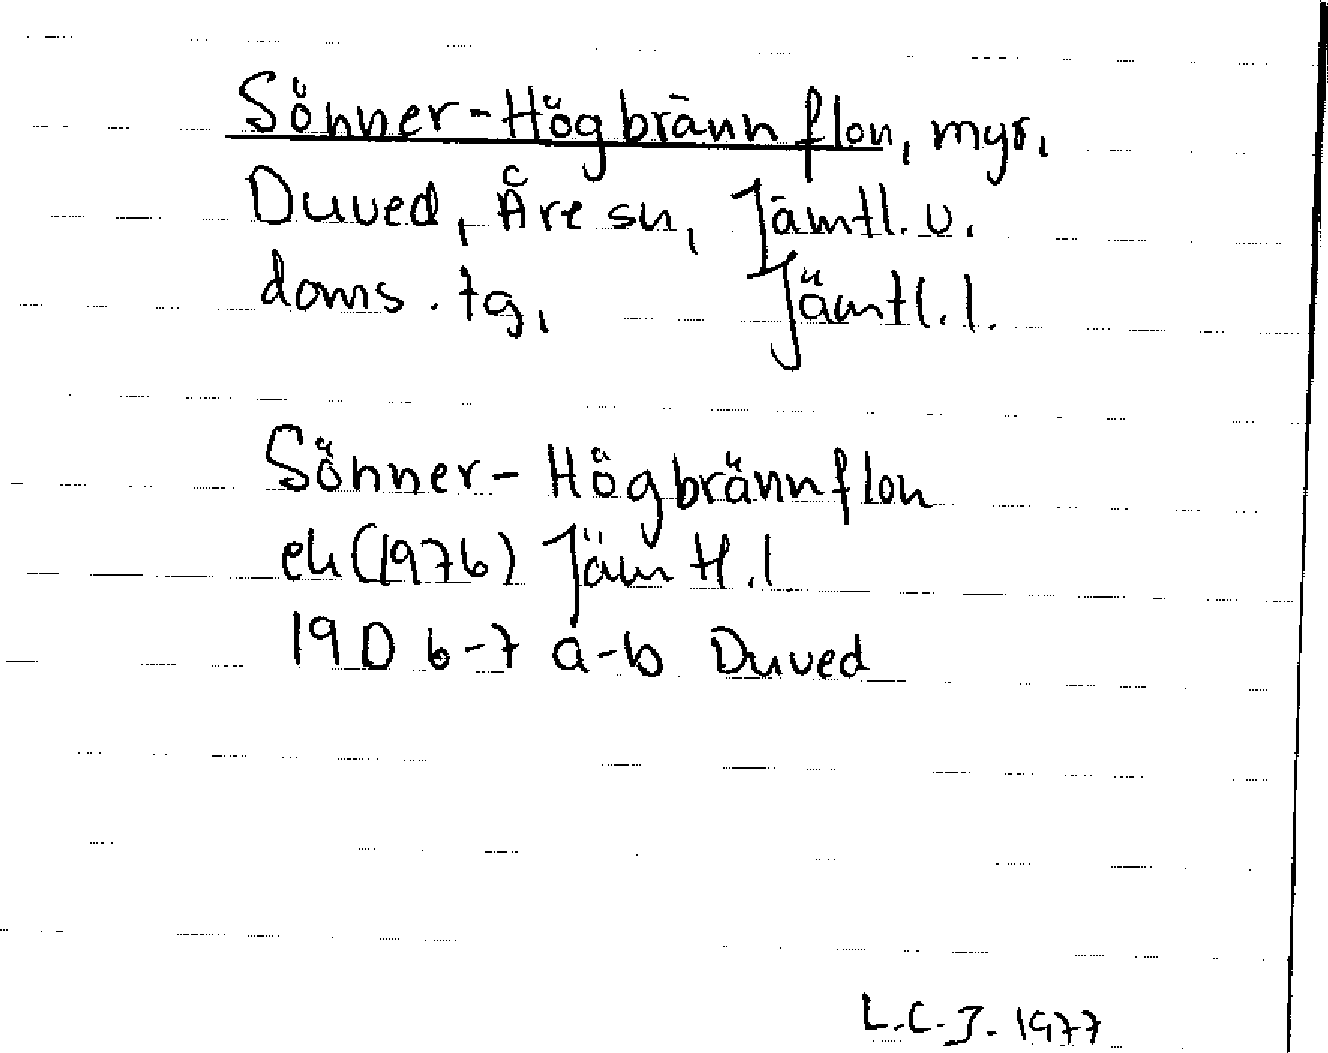 Söhner-Högbrännflon, myr,
Duved, Åre sn, Jämtl. v.
doms. tg, Jämtl. l.
Söhner-Högbrännflon
ek (1976) Jämtl. l
19D 6-7 a-b Duved
L.C.J. 1977